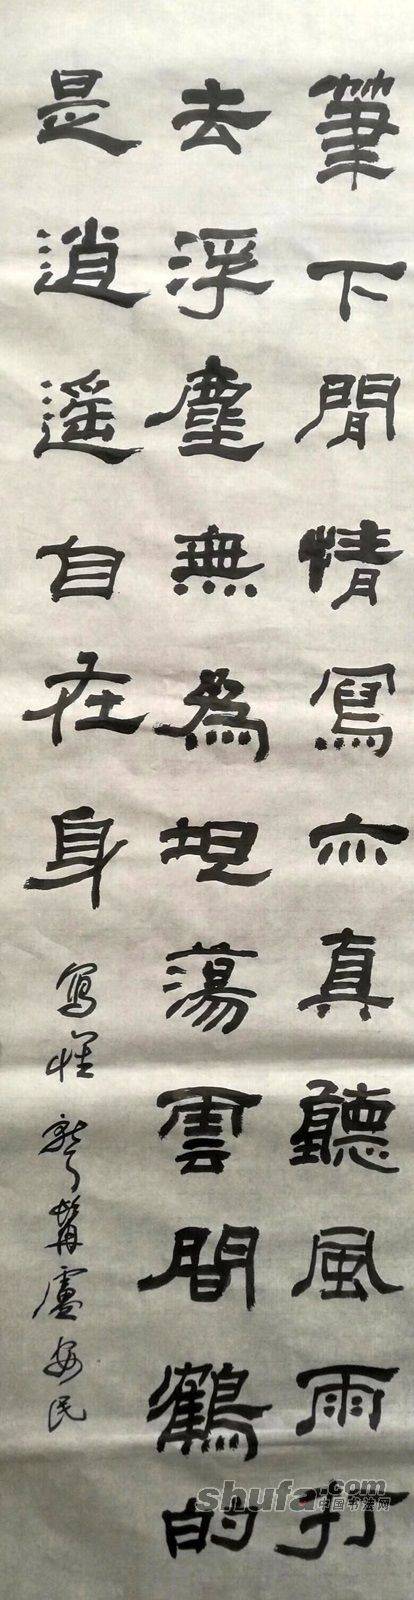 筆下閒情寫亦真聽風雨打
去浮塵無為坦蕩雲間鶴的
是逍遥自在身
寫懷 髯盧安民
shufa.com
中国书法网